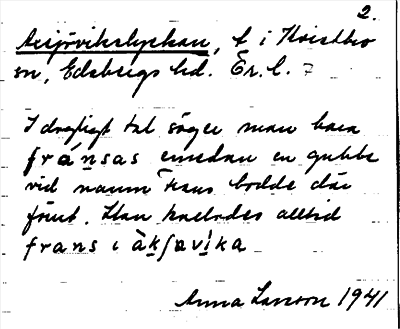 2.
Axsjövikslyckan, t. i Kvistbro
sn, Edsbergs hd. Ör. l.
I dagligt tal säger man bara
fránsas emedan en gubbe
vid namn Frans bodde där
förut. Han kallades alltid
frans i àkʃavíka
Anna Larsson 1941